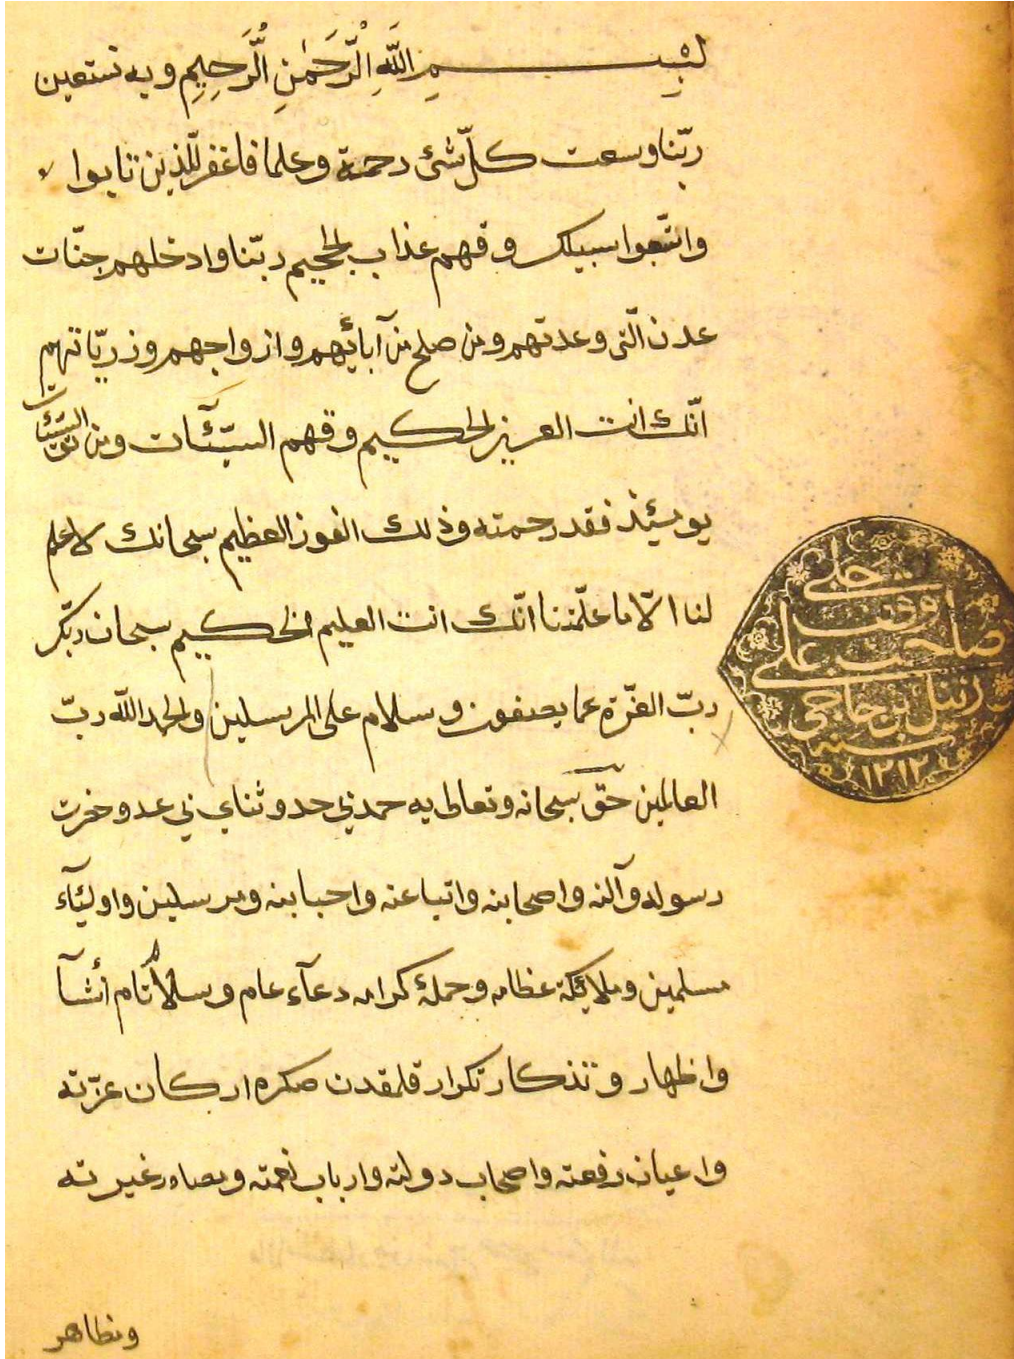 بِسْمِ اللَّهِ الرَّحَمٰنِ الرَّحِيِمِ وبه نستعين
ربّنا وسعت كلّ شئ رحمة وعلما فاغفر للّذين تابوا
واتّبعوا سبيلك وقهم عذاب الجحيم ربّنا وادخلهم جنّات
عدن الّتى وعدتهم ومن صلح من آبائهم وازواجهم وذريّاتهم
انّك انت العزيز الحكيم وقهم السيّآت ومن تق السيّئات
يومئذ فقد رحمته وذلك الفوز العظيم سبحانك لا علم
لنا الّا ما علّمتنا انّك انت العليم الحكيم سبحان ربّك
ربّ العزّة عما يصفون وسلام على المرسلين والحمد اللّه ربّ
العالمين حقّ سبحانه وتعالى يه حمدنى حد وثناى نى عد وحضرت
رسوله وآلنه واصحابنه واتباعنه واحبابنه ومرسلين واوليآء
مسلمين وملائكۀ عظامه وحملۀ كرامه دعآء عام وسلام تام أنشآ
واظهار وتذكار تكرار قلمقدن صكره اركان عزّته
واعيان رفعته واصحاب دولته وارباب نعمته وغيرته
وتظاهر
وقف
صاحب على
زنبيل بن حاجى
سنه
١٢١٢